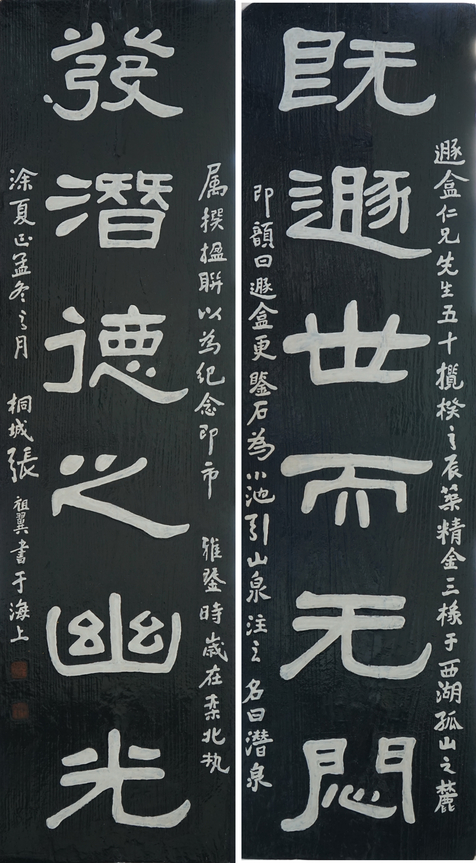 遯盦仁兄先生五十攬揆之辰築精舍三椽于西湖孤山之麓
既遯世而无悶
即額曰遯盦更鑿石為小池引山泉注之名曰潛泉
属撰楹聯以為紀念即希 雅鑒時歲在柔兆执
發潛德之幽光
涂夏正孟冬之月 桐城張祖翼書于海上